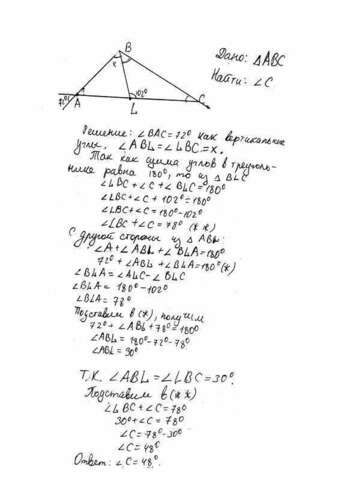 B
x
102°
72°
A
L
C
Дано: △ABC
Найти: ∠C
Решение: ∠BAC=72° как вертикальные
углы. ∠ABL=∠LBC=x.
Так как сумма углов в треуголь-
нике равна 180°, то из △BLC
∠LBC+∠C+∠BLC=180°
∠LBC+∠C+102°=180°
∠LBC+∠C=180°-102°
∠LBC+∠C=78° (**)
С другой стороны из △ABL:
∠A+∠ABL+∠BLA=180°
72°+∠ABL+∠BLA=180°(*)
∠BLA=∠ALC-∠BLC
∠BLA=180°-102°
∠BLA=78°
Подставим в (*), получим
72°+∠ABL+78°=180°
∠ABL=180°-72°-78°
∠ABL=30°
Т.к. ∠ABL=∠LBC=30°.
Подставим в (**)
∠LBC+∠C=78°
30°+∠C=78°
∠C=78°-30°
∠C=48°
Ответ: ∠C=48°.